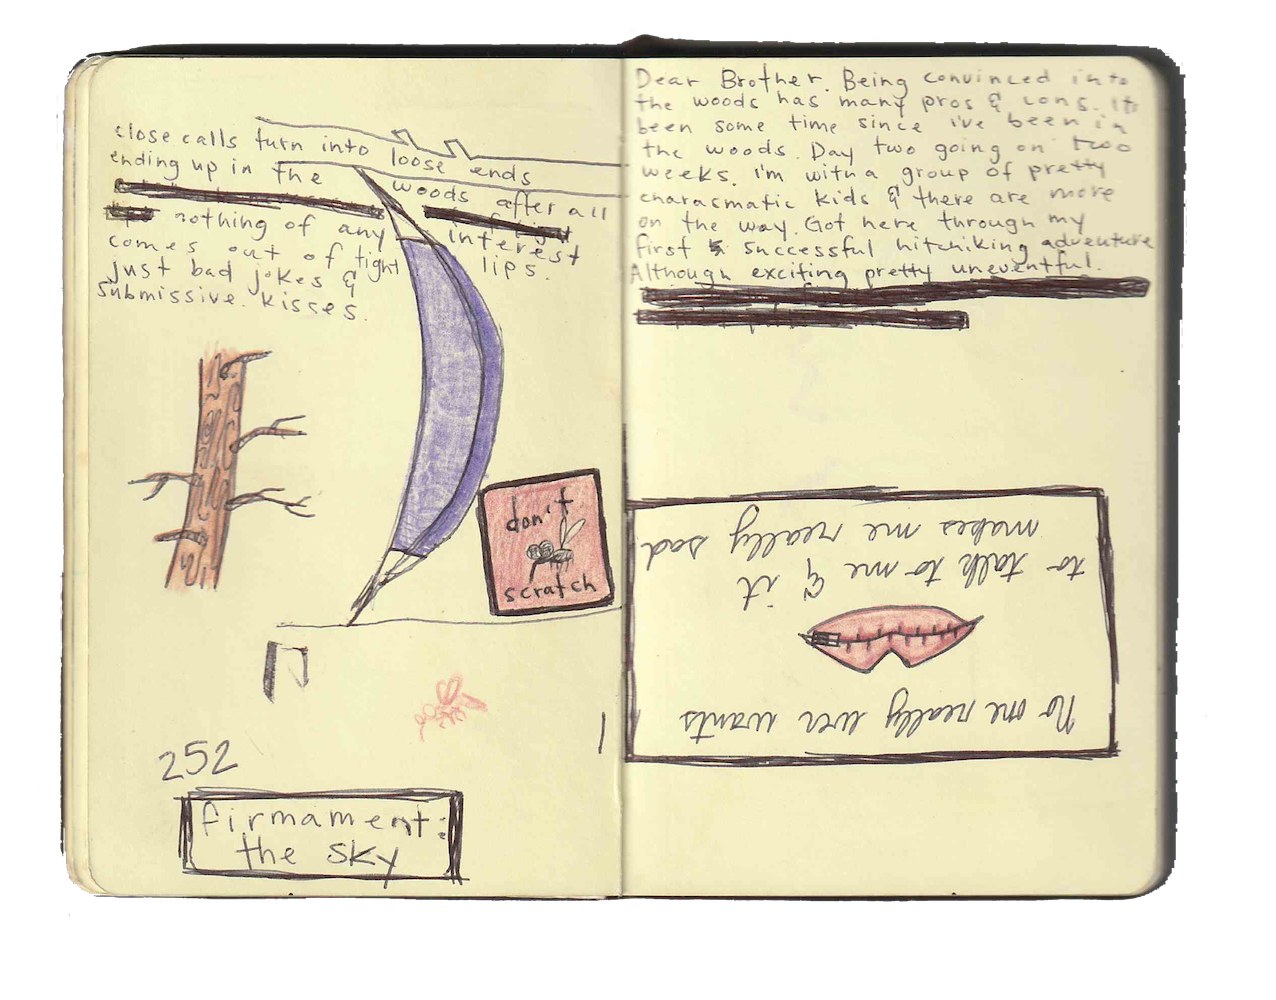 close calls turn into loose ends
ending up in the woods after all
nothing of any interest
comes out of tight lips.
just bad jokes &
submissive. kisses.
don't
scratch
252
firmament:
the sky
Dear Brother. Being convinced into
the woods has many pros & cons. It
been some time since i've been in
the woods. Day two going on two
weeks. i'm with a group of pretty
charasmatic kids & there are more
on the way. Got here through my
first successful hitchiking adventure
Although exciting pretty uneventful.
No one really ever wants
to talk to me & it
makes me really sad